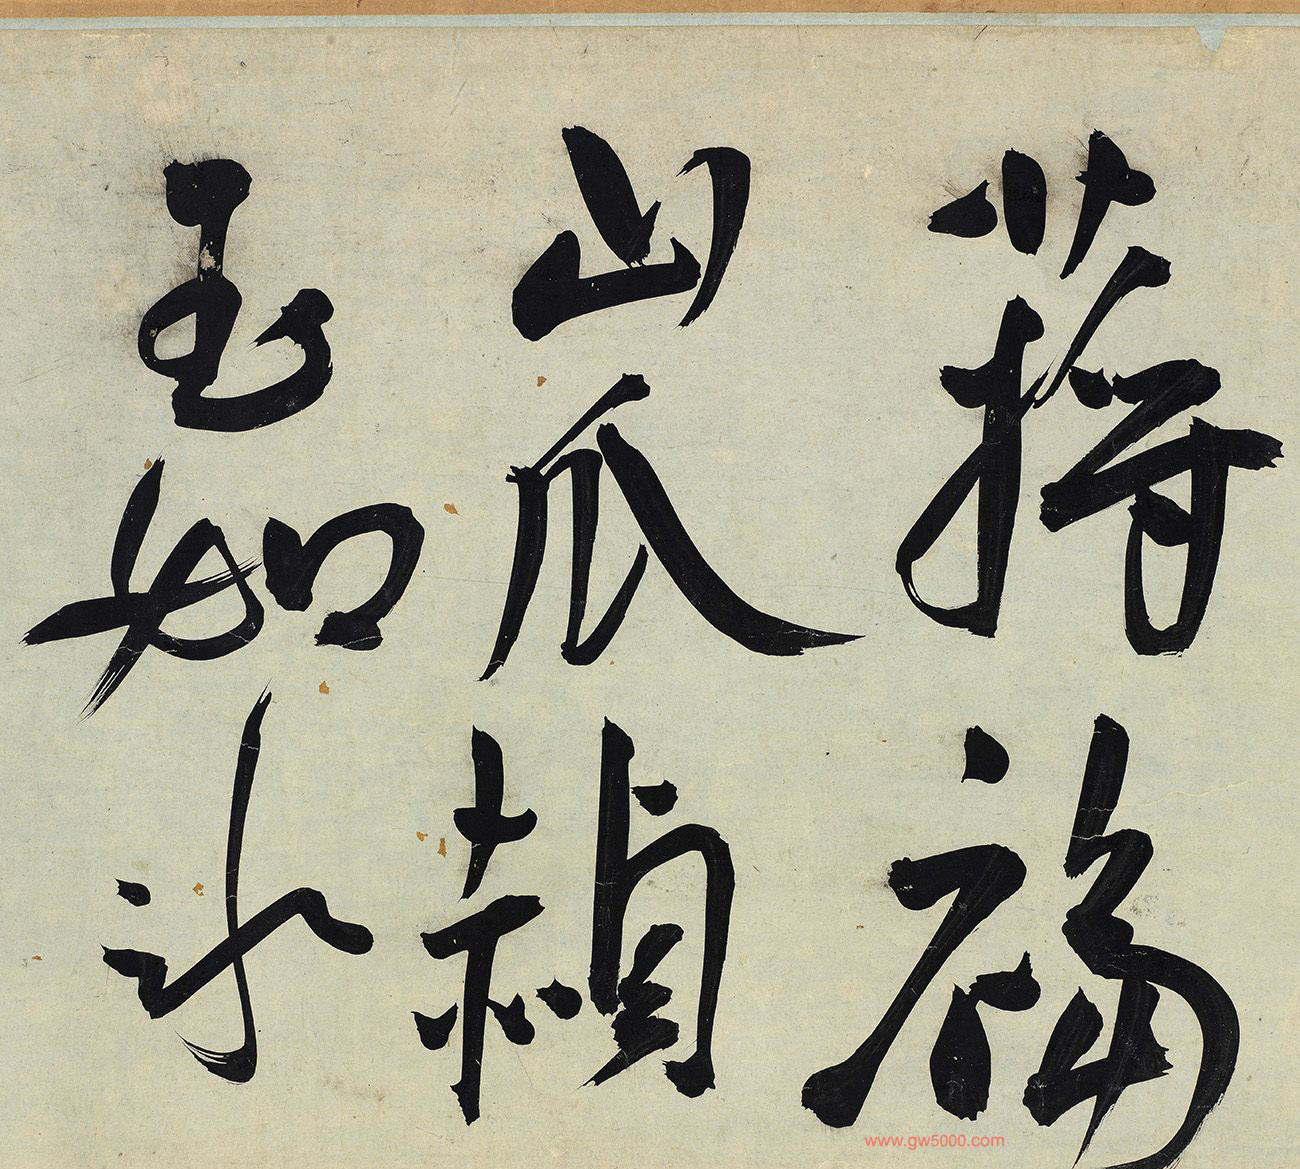 福
山爪赬
玉如冰
www.gw5000.com